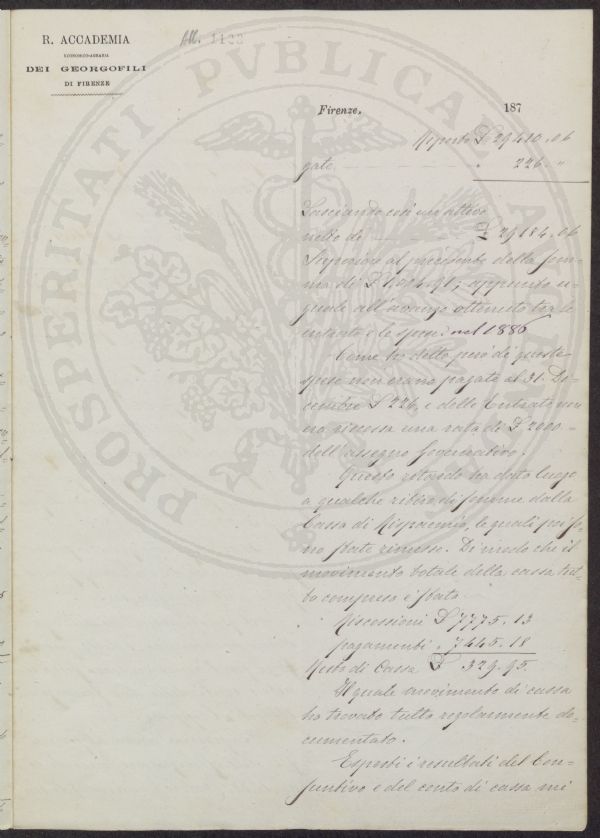 R. ACCADEMIA
ECONOMICO-AGRARIA
DEI GEORGOFILI
DI FIRENZE
All. 1122
PROSPERITATI PVBLICAE
Firenze, 187
Riporto £ 29410.06
gate " 226. "
Lasciando così un attivo
netto di £ 29184.06
Superiore al precedente della som-
ma di £ appunto u-
guale all'avanzo ottenuto tra le
entrate e le spese nel 1886
Come ho detto però di queste
spese non erano pagate al 31 De-
cembre £ 226, e delle Entrate non
era riscossa una rata di £ 2000 =
dell'assegno Governativo.
Questo ritardo ha dato luogo
a qualche ritiro di somme dalla
Cassa di Risparmio, le quali poi so-
no state rimesse. Di modo che il
movimento totale della cassa tut-
to compreso è stato
Riscossioni £ 7775.13
pagamenti " 7445.18
Resto di Cassa £ 329.95.
Il quale movimento di cassa
ho trovato tutto regolarmente do-
cumentato.
Esposti i resultati del Con-
suntivo e del conto di cassa mi